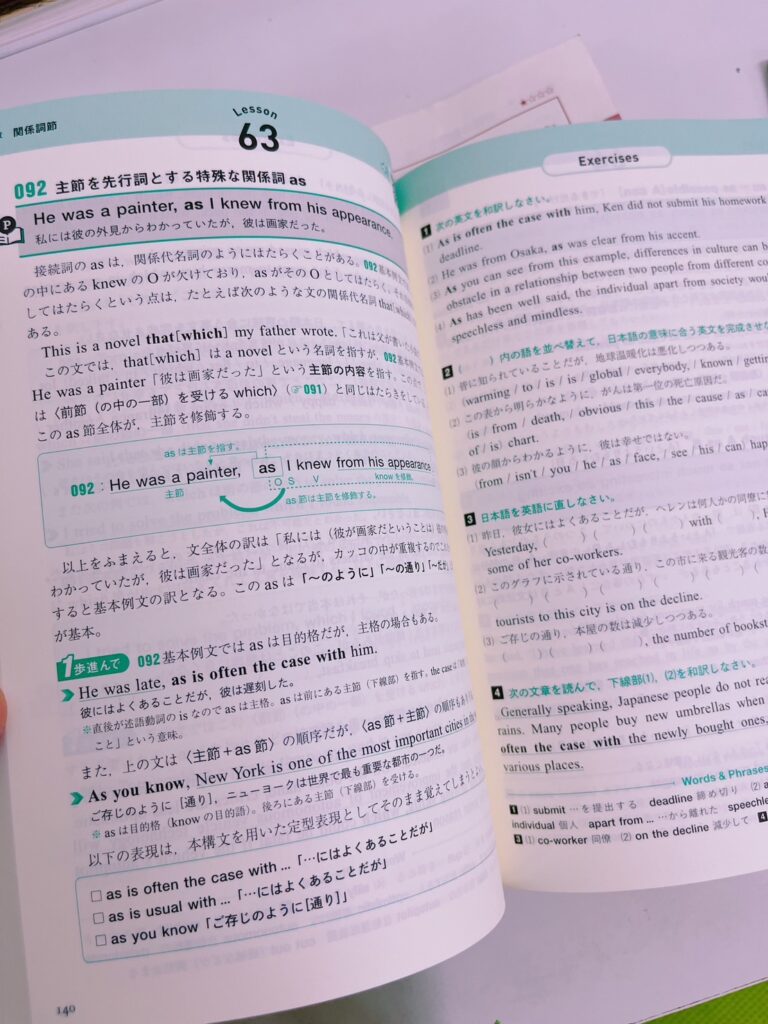 関係詞節
Lesson
63
092 主節を先行詞とする特殊な関係詞 as
He was a painter, as I knew from his appearance.
私には彼の外見からわかっていたが，彼は画家だった。
接続詞の as は，関係代名詞のようにはたらくことがある。092基本例文
の中にある knew の O が欠けており，as がその O としてはたらく。
してはたらくという点は，たとえば次のような文の関係代名詞 that
ある。
This is a novel that[which] my father wrote.「これは父が書いた
この文では，that[which] は a novel という名詞を指すが，092基本例文
He was a painter「彼は画家だった」という主節の内容を指す。
は〈前節（の中の一部）を受ける which〉（☞091）と同じはたらきをしている
この as 節全体が，主節を修飾する。
as は主節を指す。
092：He was a painter, as I knew from his appearance
主節 O S V know を修飾。
as 節は主節を修飾する。
以上をふまえると，文全体の訳は「私には（彼が画家だということは）
わかっていたが，彼は画家だった」となるが，カッコの中が重複するので
すると基本例文の訳となる。この as は「〜のように」「〜の通り」「〜だが」
が基本。
1歩進んで 092基本例文では as は目的格だが，主格の場合もある。
He was late, as is often the case with him.
彼にはよくあることだが，彼は遅刻した。
※直後が述語動詞の is なので as は主格。as は前にある主節（下線部）を指す。the case は
こと」という意味。
また，上の文は〈主節＋as 節〉の順序だが，〈as 節＋主節〉の順序も
As you know, New York is one of the most important cities in
ご存じのように［通り］，ニューヨークは世界で最も重要な都市の一つだ。
※ as は目的格（know の目的語）。後ろにある主節（下線部）を受ける。
以下の表現は，本構文を用いた定型表現としてそのまま覚えてしまう
□ as is often the case with ...「…にはよくあることだが」
□ as is usual with ...「…にはよくあることだが」
□ as you know「ご存じのように[通り]」
140
Exercises
1 次の英文を和訳しなさい。
(1) As is often the case with him, Ken did not submit his homework
deadline.
(2) He was from Osaka, as was clear from his accent.
(3) As you can see from this example, differences in culture can b
obstacle in a relationship between two people from different co
(4) As has been well said, the individual apart from society wou
speechless and mindless.
2 （ ）内の語を並べ替えて，日本語の意味に合う英文を完成させな
(1) 皆に知られていることだが，地球温暖化は悪化しつつある。
(warming / to / is / is / global / everybody, / known / getting
(2) この表から明らかなように，がんは第一位の死亡原因だ。
(is / from / death, / obvious / this / the / cause / as / ca
of / is) chart.
(3) 彼の顔からわかるように，彼は幸せではない。
(from / isn't / you / he / as / face, / see / his / can) hap
3 日本語を英語に直しなさい。
(1) 昨日，彼女にはよくあることだが，ヘレンは何人かの同僚に
Yesterday, ( ) ( ) ( ) ( ) with ( ), H
some of her co-workers.
(2) このグラフに示されている通り，この市に来る観光客の数
( ) ( ) ( ) ( ) ( ) (
tourists to this city is on the decline.
(3) ご存じの通り，本屋の数は減少しつつある。
( ) ( ) ( ), the number of bookst
4 次の文章を読んで，下線部(1)，(2)を和訳しなさい。
Generally speaking, Japanese people do not rea
rains. Many people buy new umbrellas when
often the case with the newly bought ones,
various places.
Words & Phrases
1 (1) submit …を提出する deadline 締め切り (2) a
individual 個人 apart from ... …から離れた speechle
3 (1) co-worker 同僚 (2) on the decline 減少して 4